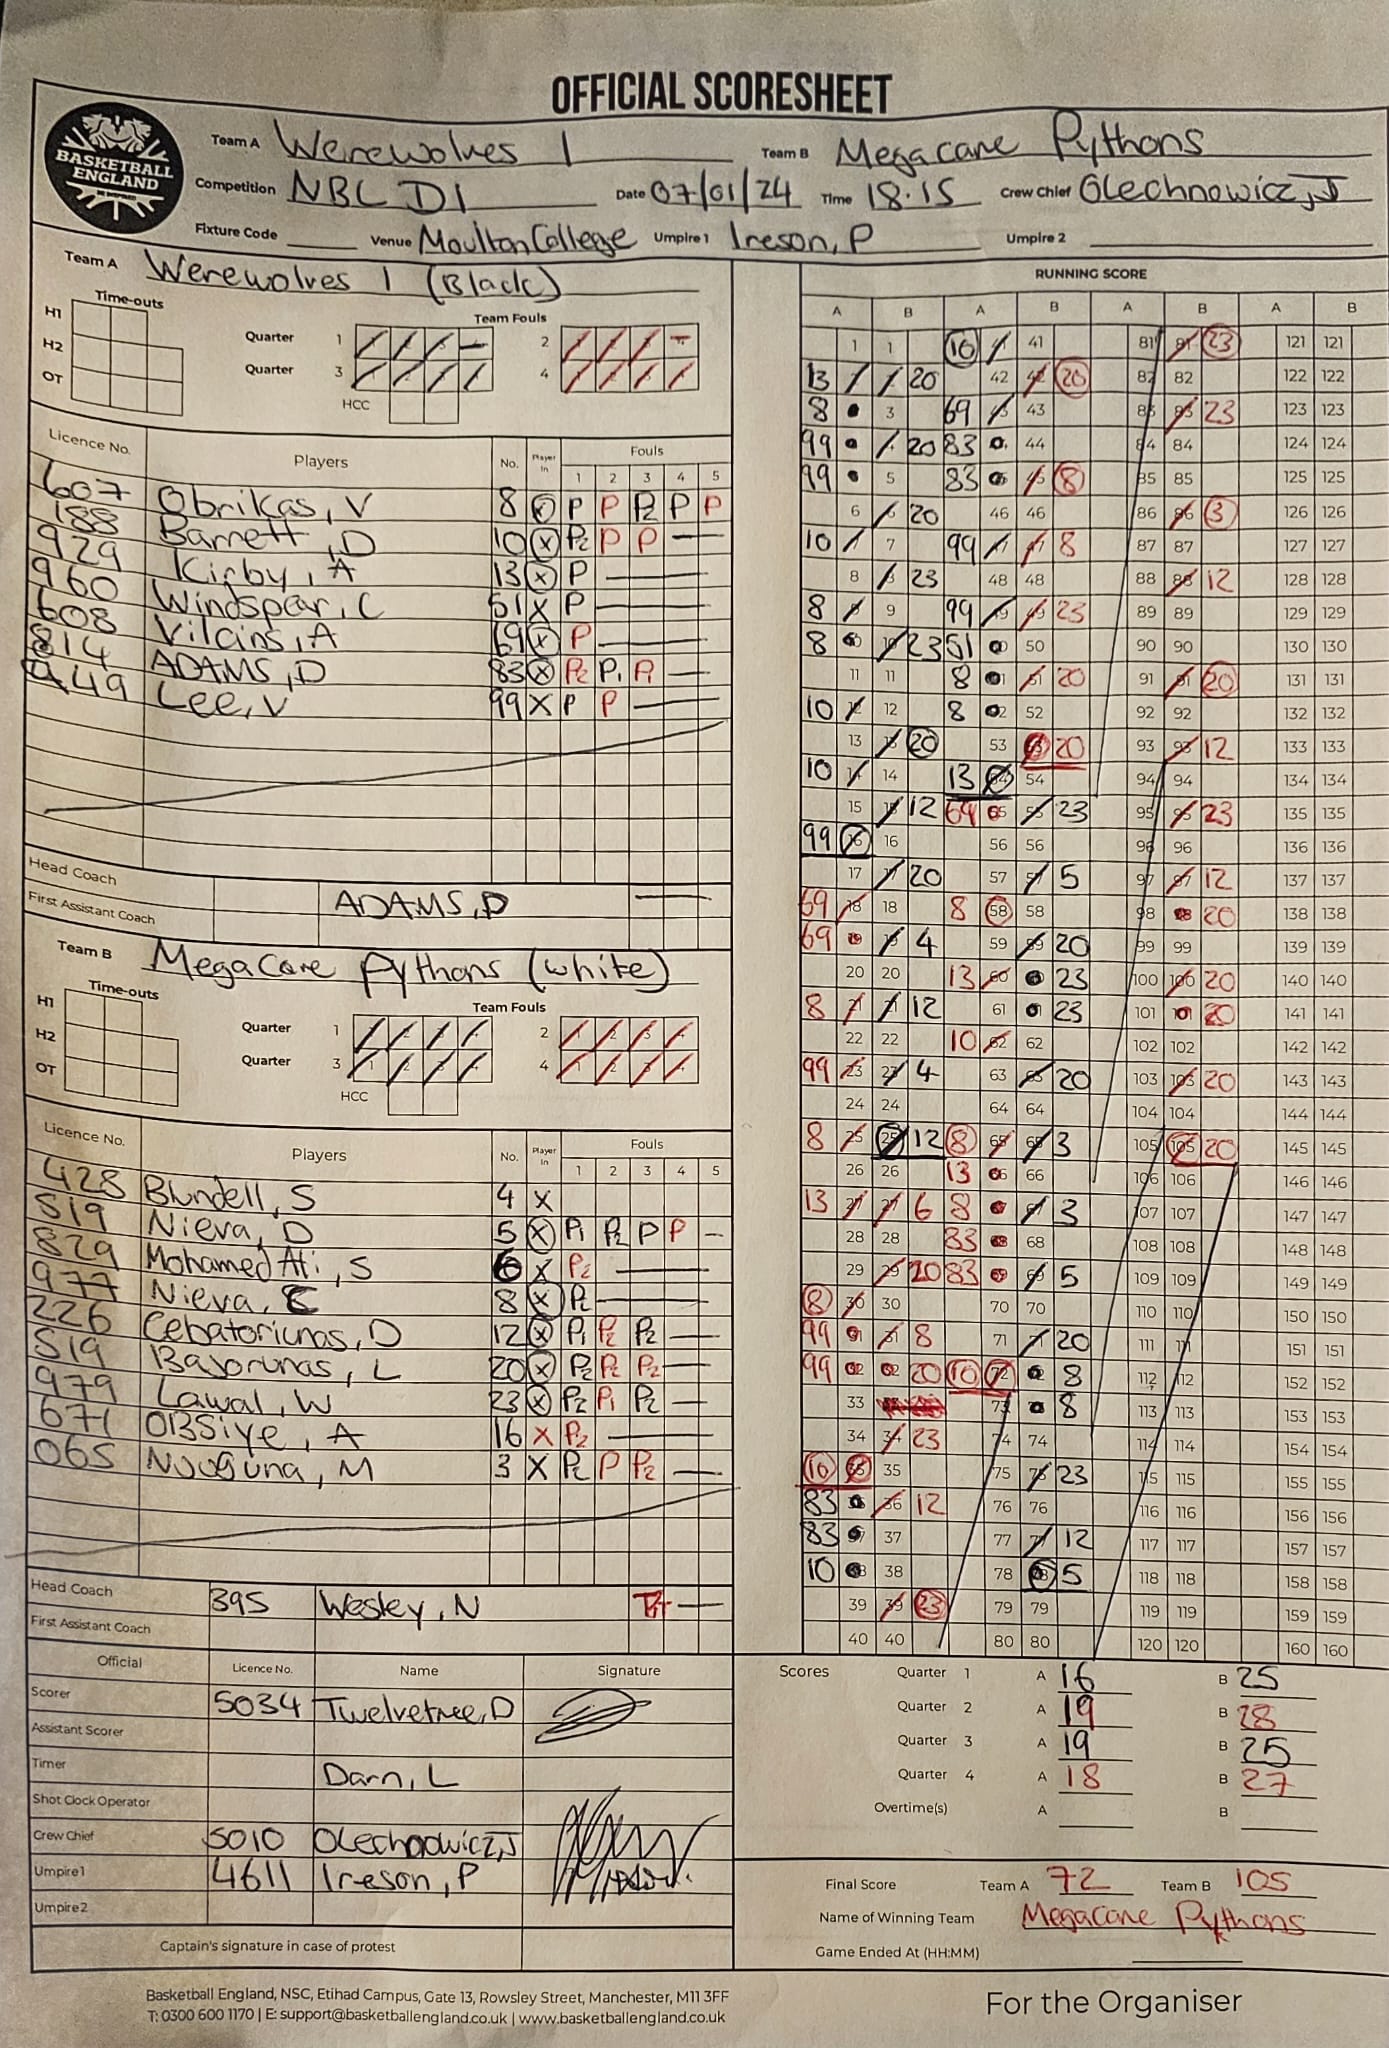 OFFICIAL SCORESHEET
BASKETBALL
ENGLAND
Team A Werewolves 1 Team B Megacare Pythons
Competition NBL D1 Date 07/01/24 Time 18.15 Crew Chief Olechnowicz, J
Fixture Code Venue Moulton College Umpire 1 Ireson, P Umpire 2
Team A Werewolves 1 (Black)
Time-outs Team Fouls
H1 Quarter 1 2
H2 Quarter 3 4
OT HCC
Licence No. Players No. Player in Fouls
1 2 3 4 5
607 Obrikas, V 8 X P P P2 P P
188 Barrett, D 10 X P2 P P
929 Kirby, A 13 X P
960 Windspear, C 51 X P
608 Vilcins, A 69 X P
814 ADAMS, D 83 X P2 P1 P1
949 Lee, V 99 X P P
Head Coach ADAMS, D
First Assistant Coach
Team B MegaCare Pythons (white)
Time-outs Team Fouls
H1 Quarter 1 2
H2 Quarter 3 4
OT HCC
Licence No. Players No. Player in Fouls
1 2 3 4 5
428 Blundell, S 4 X
519 Nieva, D 5 X P1 P2 P P
829 Mohamed Ali, S 6 X P2
977 Nieva, C 8 X P2
226 Cebatoriunas, D 12 X P1 P2 P2
519 Basorunas, L 20 X P2 P2 P2
979 Lawal, W 23 X P2 P1 P2
671 OBSiye, A 16 X P2
065 M 3 X P2 P P2
Head Coach 395 Wesley, N
First Assistant Coach
Official Licence No. Name Signature
Scorer 5034 Twelvetree, D
Assistant Scorer
Timer Darn, L
Shot Clock Operator
Crew Chief 5010 Olechnowicz, J
Umpire 1 4611 Ireson, P
Umpire 2
Captain's signature in case of protest
RUNNING SCORE
A B A B A B A B
1 1 10 41 81 81 23 121 121
13 20 42 42 20 82 82 122 122
8 3 69 43 83 83 23 123 123
99 20 83 44 84 84 124 124
99 5 83 45 8 85 85 125 125
6 20 46 46 86 86 3 126 126
10 7 99 47 8 87 87 127 127
8 23 48 48 88 88 12 128 128
8 9 99 49 23 89 89 129 129
8 10 23 51 50 90 90 130 130
11 11 8 51 20 91 91 20 131 131
10 12 12 8 52 52 92 92 132 132
13 13 20 53 53 20 93 93 12 133 133
10 14 14 13 54 54 94 94 134 134
15 15 12 69 55 55 23 95 95 23 135 135
99 16 16 56 56 96 96 136 136
17 17 20 57 57 5 97 97 12 137 137
69 18 18 8 58 58 98 98 20 138 138
69 19 19 4 59 59 20 99 99 139 139
20 20 13 60 60 23 100 100 20 140 140
8 21 21 12 61 61 23 101 101 20 141 141
22 22 10 62 62 102 102 142 142
99 23 23 4 63 63 20 103 103 20 143 143
24 24 64 64 104 104 144 144
8 25 25 12 8 65 65 3 105 105 20 145 145
26 26 13 66 66 106 106 146 146
13 27 27 6 8 67 3 107 107 147 147
28 28 83 68 68 108 108 148 148
29 29 20 83 69 69 5 109 109 149 149
8 30 30 70 70 110 110 150 150
99 31 31 8 71 71 20 111 111 151 151
99 32 32 20 10 72 8 112 112 152 152
33 73 8 113 113 153 153
34 34 23 74 74 114 114 154 154
10 35 35 75 75 23 115 115 155 155
83 36 12 76 76 116 116 156 156
83 37 77 77 12 117 117 157 157
10 38 38 78 78 5 118 118 158 158
39 39 23 79 79 119 119 159 159
40 40 80 80 120 120 160 160
Scores Quarter 1 A 16 B 25
Quarter 2 A 19 B 28
Quarter 3 A 19 B 25
Quarter 4 A 18 B 27
Overtime(s) A B
Final Score Team A 72 Team B 105
Name of Winning Team Megacare Pythons
Game Ended At (HH:MM)
Basketball England, NSC, Etihad Campus, Gate 13, Rowsley Street, Manchester, M11 3FF
T: 0300 600 1170 | E: support@basketballengland.co.uk | www.basketballengland.co.uk
For the Organiser